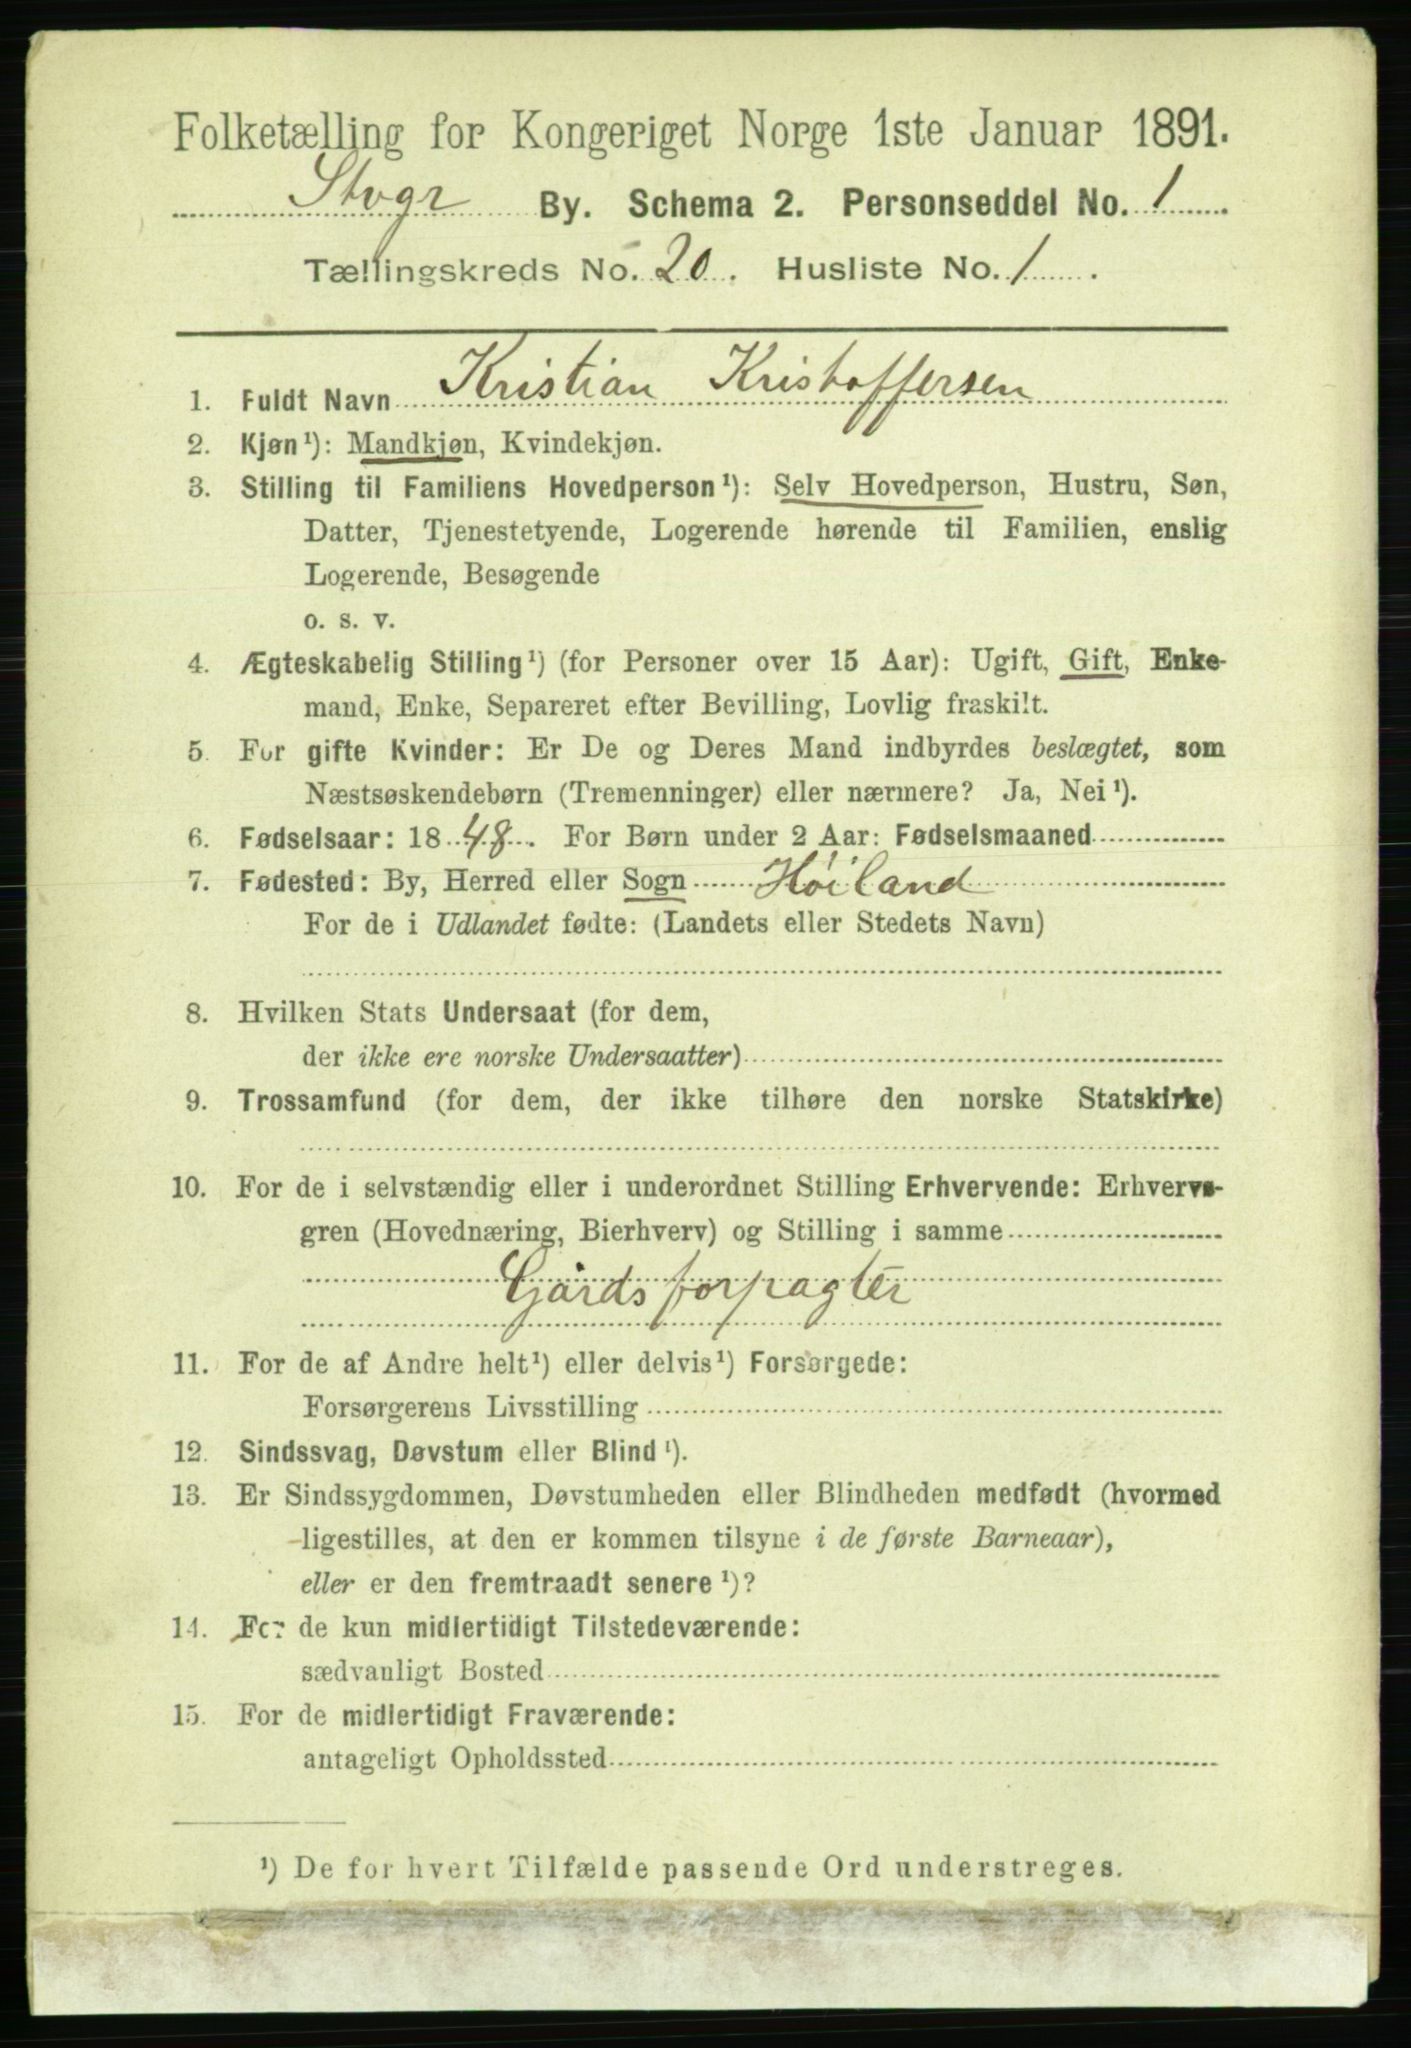 Folketælling for Kongeriget Norge 1ste Januar 1891.
Stvgr By. Schema 2. Personseddel No. 1
Tællingskreds No. 20. Husliste No. 1.
1. Fuldt Navn Kristian Kristoffersen
2. Kjøn¹): Mandkjøn, Kvindekjøn.
3. Stilling til Familiens Hovedperson¹): Selv Hovedperson, Hustru, Søn,
Datter, Tjenestetyende, Logerende hørende til Familien, enslig
Logerende, Besøgende
o. s. v.
4. Ægteskabelig Stilling¹) (for Personer over 15 Aar): Ugift, Gift, Enke-
mand, Enke, Separeret efter Bevilling, Lovlig fraskilt.
5. For gifte Kvinder: Er De og Deres Mand indbyrdes beslægtet, som
Næstsøskendebørn (Tremenninger) eller nærmere? Ja, Nei¹).
6. Fødselsaar: 1848. For Børn under 2 Aar: Fødselsmaaned
7. Fødested: By, Herred eller Sogn Høiland
For de i Udlandet fødte: (Landets eller Stedets Navn)
8. Hvilken Stats Undersaat (for dem,
der ikke ere norske Undersaatter)
9. Trossamfund (for dem, der ikke tilhøre den norske Statskirke)
10. For de i selvstændig eller i underordnet Stilling Erhvervende: Erhvervs-
gren (Hovednæring, Bierhverv) og Stilling i samme
Gårdsforpagter
11. For de af Andre helt¹) eller delvis¹) Forsørgede:
Forsørgerens Livsstilling
12. Sindssvag, Døvstum eller Blind¹).
13. Er Sindssygdommen, Døvstumheden eller Blindheden medfødt (hvormed
ligestilles, at den er kommen tilsyne i de første Barneaar),
eller er den fremtraadt senere¹)?
14. For de kun midlertidigt Tilstedeværende:
sædvanligt Bosted
15. For de midlertidigt Fraværende:
antageligt Opholdssted
¹) De for hvert Tilfælde passende Ord understreges.